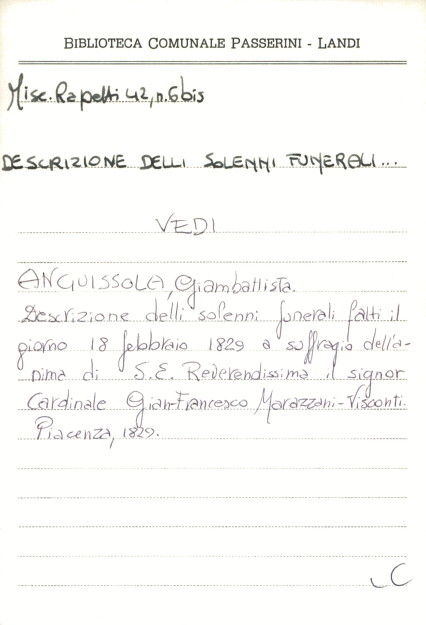 BIBLIOTECA COMUNALE PASSERINI - LANDI
Misc. Rapetti 42, n. 6 bis
DESCRIZIONE DELLI SOLENNI FUNERALI...
VEDI
ANGUISSOLA, Giambattista.
Descrizione delli solenni funerali fatti il
giorno 18 febbraio 1829 a suffragio dell'a-
nima di S.E. Reverendissima il signor
Cardinale Gian-Francesco Marazzani-Visconti.
Piacenza, 1829.